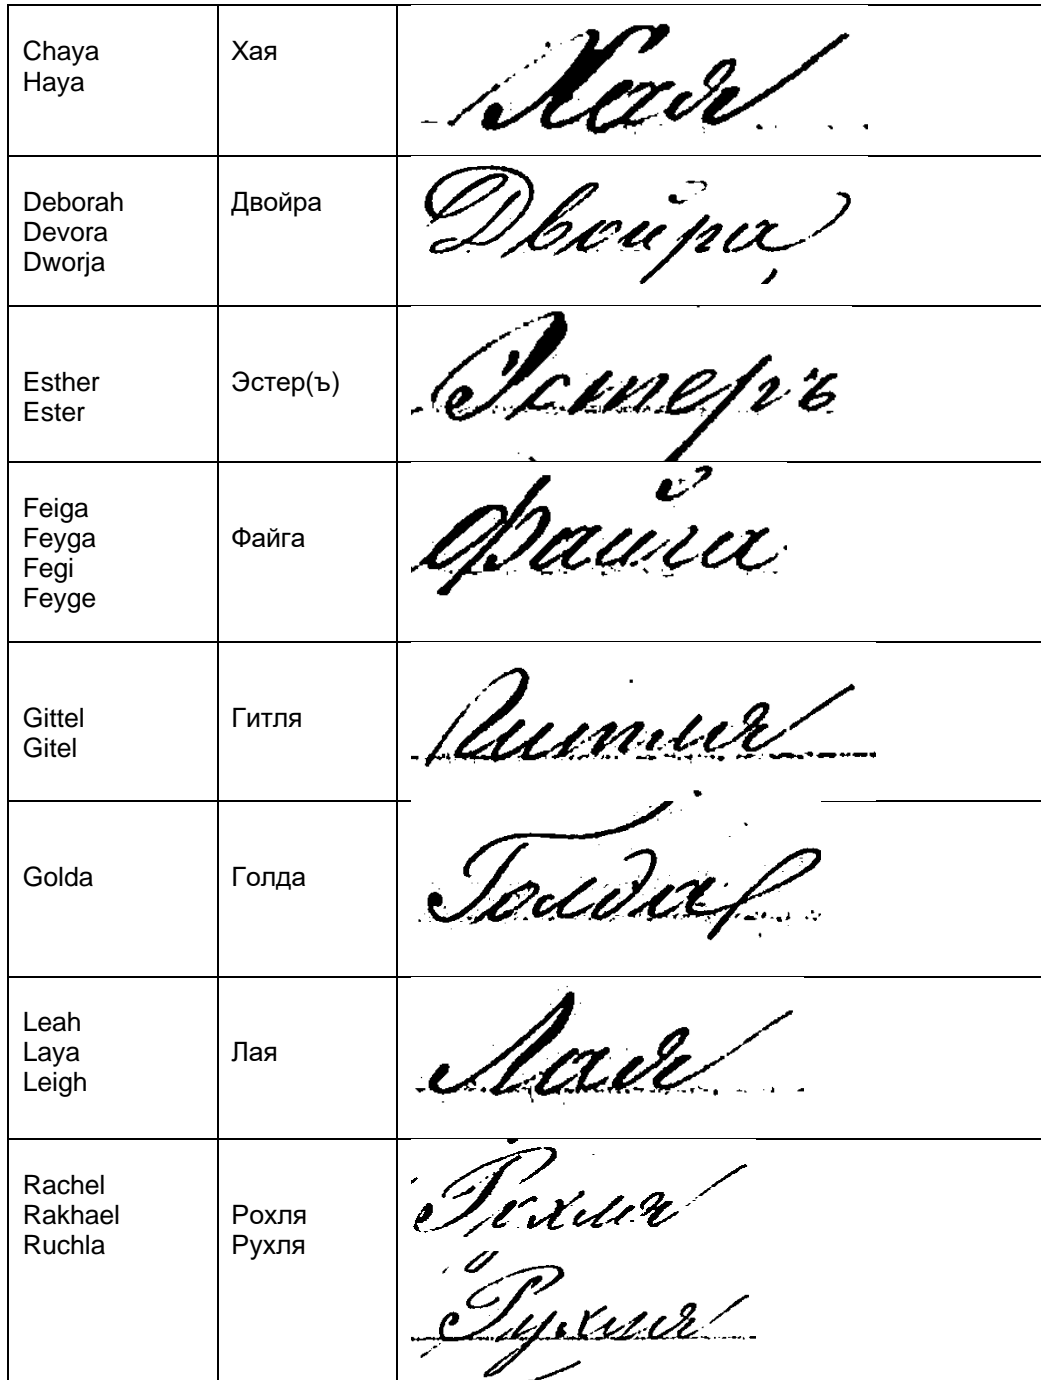 Chaya
Haya
Хая
Хая
Deborah
Devora
Dworja
Двойра
Двойра
Esther
Ester
Эстер(ъ)
Эстеръ
Feiga
Feyga
Fegi
Feyge
Файга
Файга
Gittel
Gitel
Гитля
Гитля
Golda
Голда
Голда
Leah
Laya
Leigh
Лая
Лая
Rachel
Rakhael
Ruchla
Рохля
Рухля
Рохля
Рухля